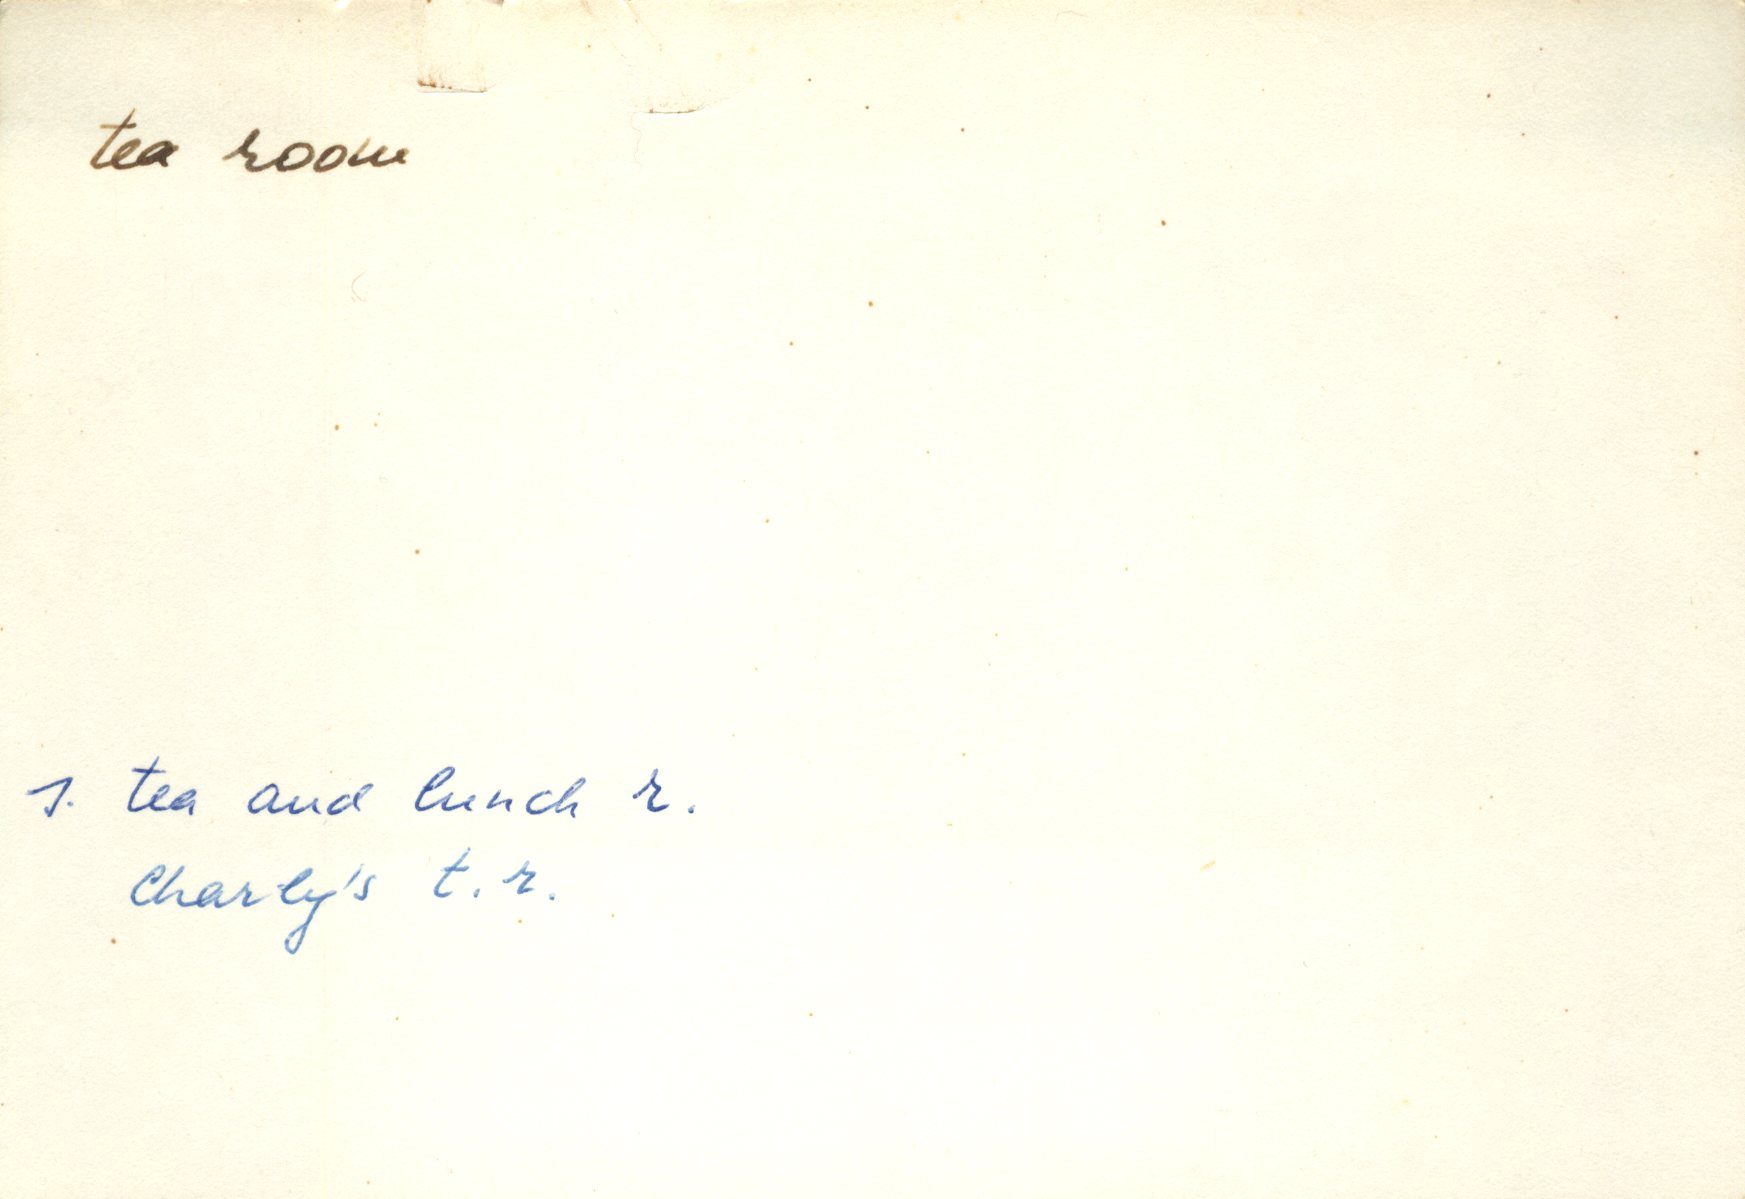 tea room
s. tea and lunch r.
Charly's t. r.